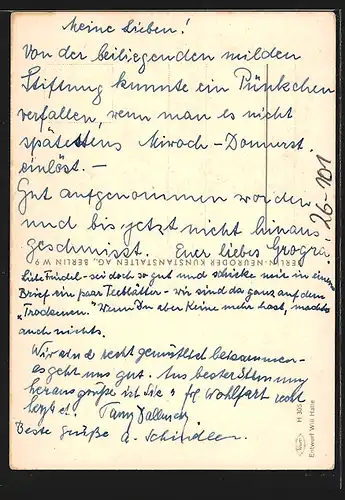 Meine Lieben!
Von der beiliegenden milden
Stiftung kunnte ein Pünkchen
verfallen, wenn man es nicht
spätestens Miwoch-Donnerst.
einlöst.-
Gut aufgenommen worden
und bis jetzt nicht hinaus
geschmisst. Euer liebes Grogra.
BERLIN-NEURODER KUNSTANSTALTEN AG., BERLIN W 9
Friedel - sei doch so gut und schicke mir in einem
Brief ein paar Teeblätter - wir sind da ganz auf dem
"Trockenen". Wenn Ihr aber keine mehr habt, machts
auch nichts.
Wir sind recht gemütlich beisammen -
es geht uns gut. Aus bester Stimmung
heraus grüße ich Sie Frl. Wohlfart
herzl
Beste Grüße a. Schindler.
26-101
H 305
Entwurf Will Halle